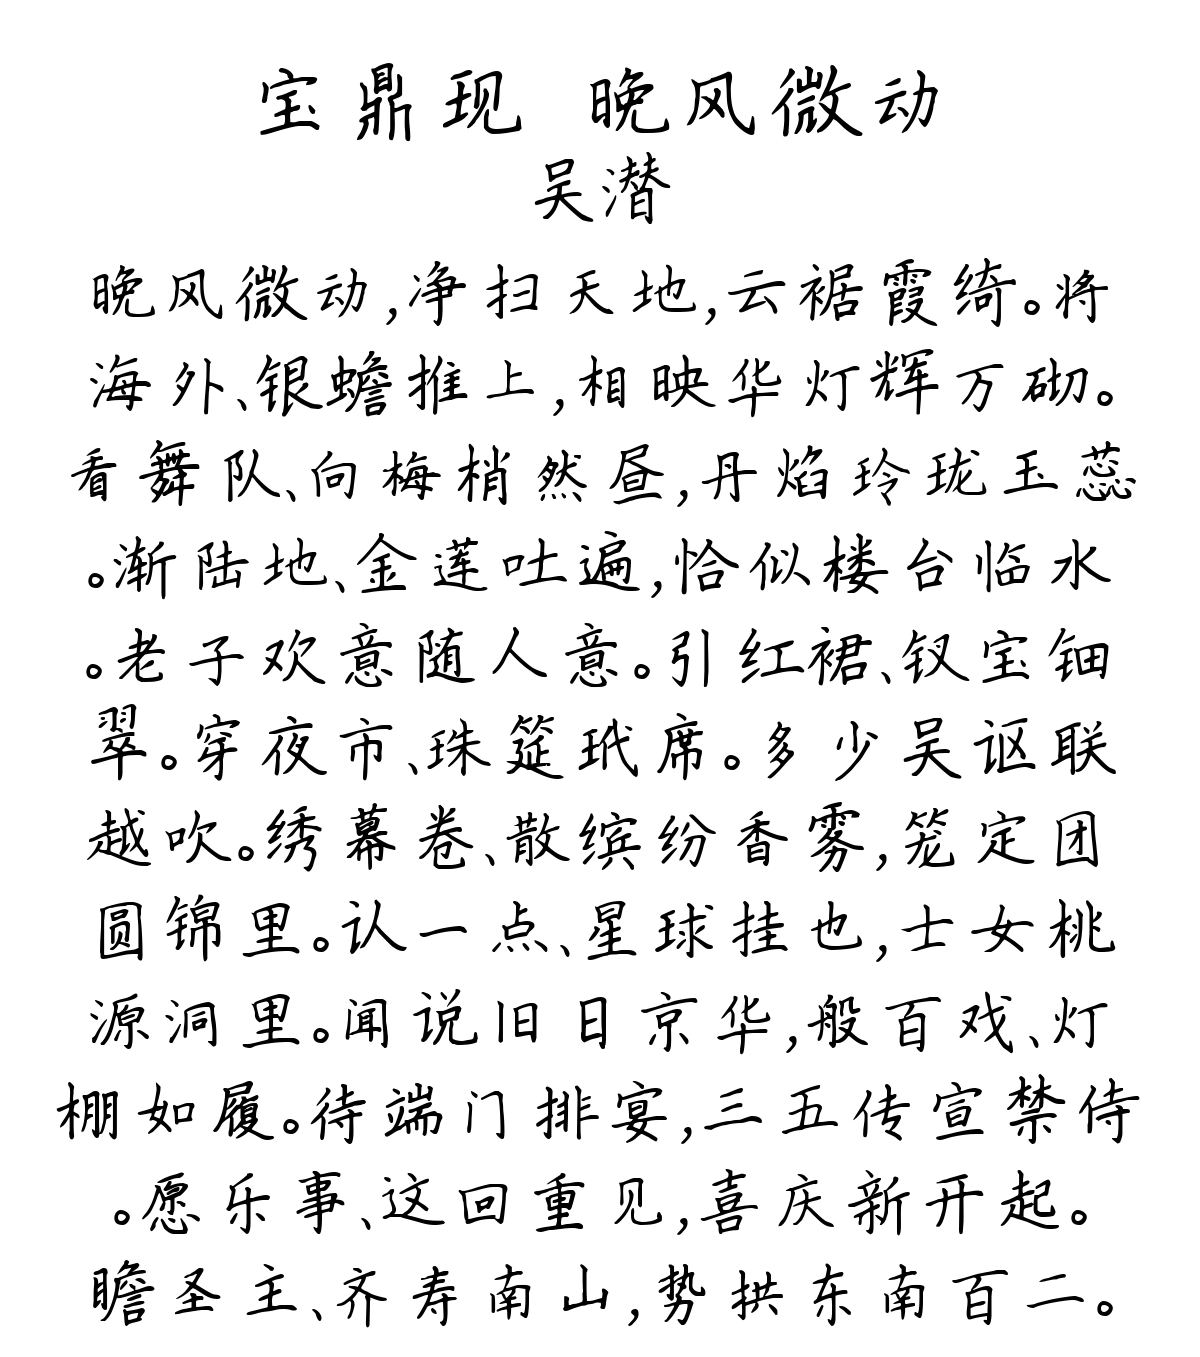 宝鼎现 晚风微动
吴潜
晚风微动,净扫天地,云裾霞绮。将
海外、银蟾推上,相映华灯辉万砌。
看舞队、向梅梢然昼,丹焰玲珑玉蕊
。渐陆地、金莲吐遍,恰似楼台临水
。老子欢意随人意。引红裙、钗宝钿
翠。穿夜市、珠筵玳席。多少吴讴联
越吹。绣幕卷、散缤纷香雾,笼定团
圆锦里。认一点、星球挂也,士女桃
源洞里。闻说旧日京华,般百戏、灯
棚如履。待端门排宴,三五传宣禁侍
。愿乐事、这回重见,喜庆新开起。
瞻圣主、齐寿南山,势拱东南百二。